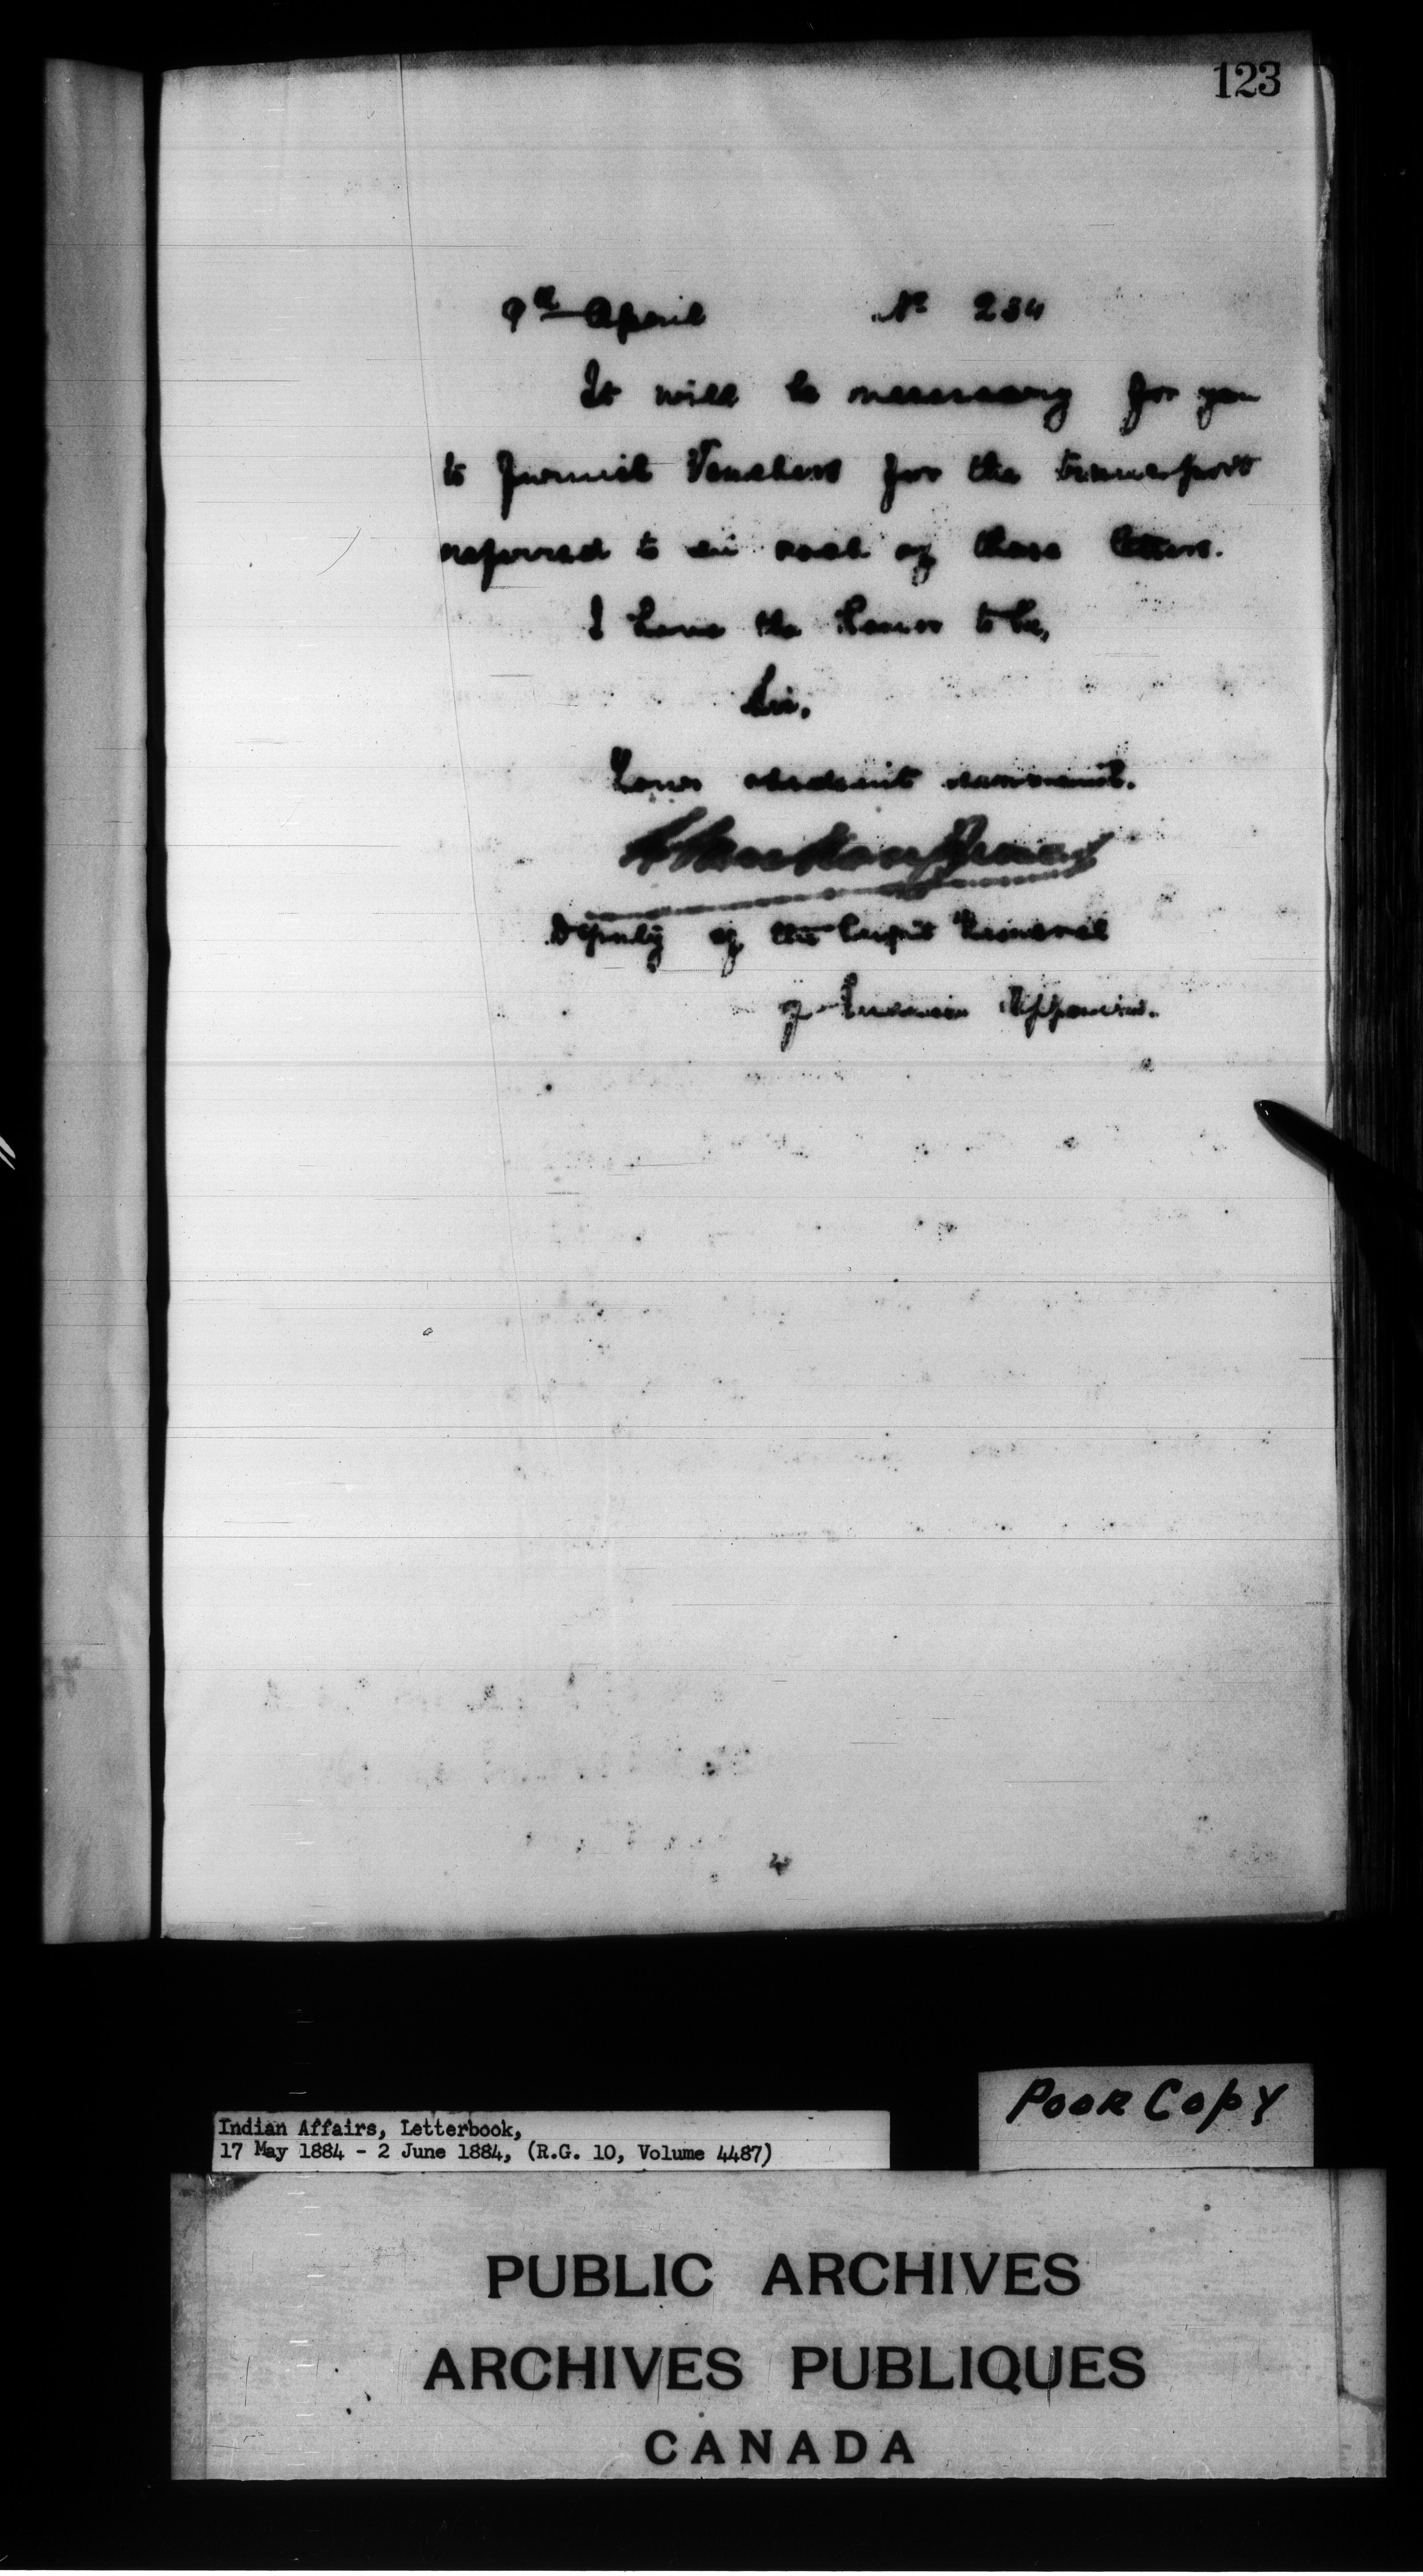 123
9th April No 234
It will be necessary for you
to furnish Vouchers for the transport
referred to in each of these letters.
I have the honor to be,
Sir,
Your obedient servant.
Deputy of the Supt General
of Indian Affairs.
Poor Copy
Indian Affairs, Letterbook,
17 May 1884 - 2 June 1884, (R.G. 10, Volume 4487)
PUBLIC ARCHIVES
ARCHIVES PUBLIQUES
CANADA